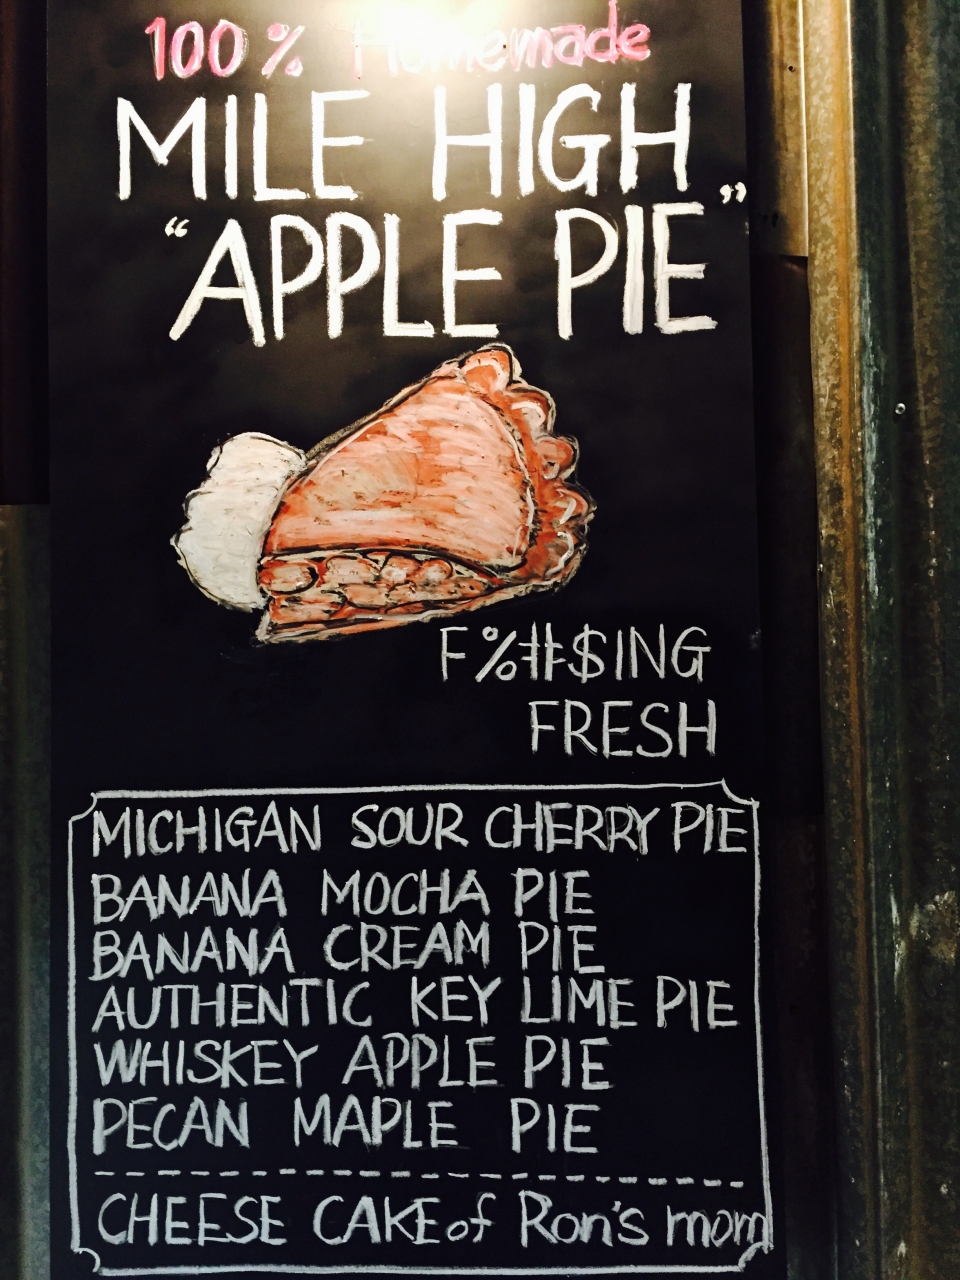 100% Homemade
MILE HIGH
“APPLE PIE”
F%#$ING
FRESH
MICHIGAN SOUR CHERRY PIE
BANANA MOCHA PIE
BANANA CREAM PIE
AUTHENTIC KEY LIME PIE
WHISKEY APPLE PIE
PECAN MAPLE PIE
CHEESE CAKE of Ron's mom